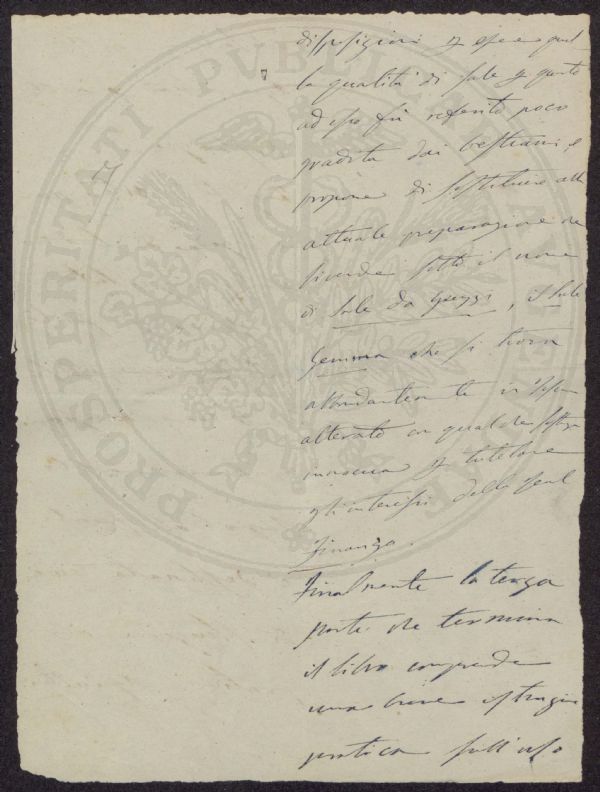 disposizioni
la qualità di sale p questo
ad esso fu referito poco
gradita dai bestiami, e
propone di sostituire alla
attuale preparazione che
si vende sotto il nome
di sale da greggi, il sale
gemma che si trova
abbondantemente in
alterato con qualche sostanza
innocua p tutelare
gli interessi della Real
Finanza.
Finalmente la terza
parte che termina
il libro comprende
una breve istruzione
pratica sull'uso
PROSPERITATI PVBLICAE